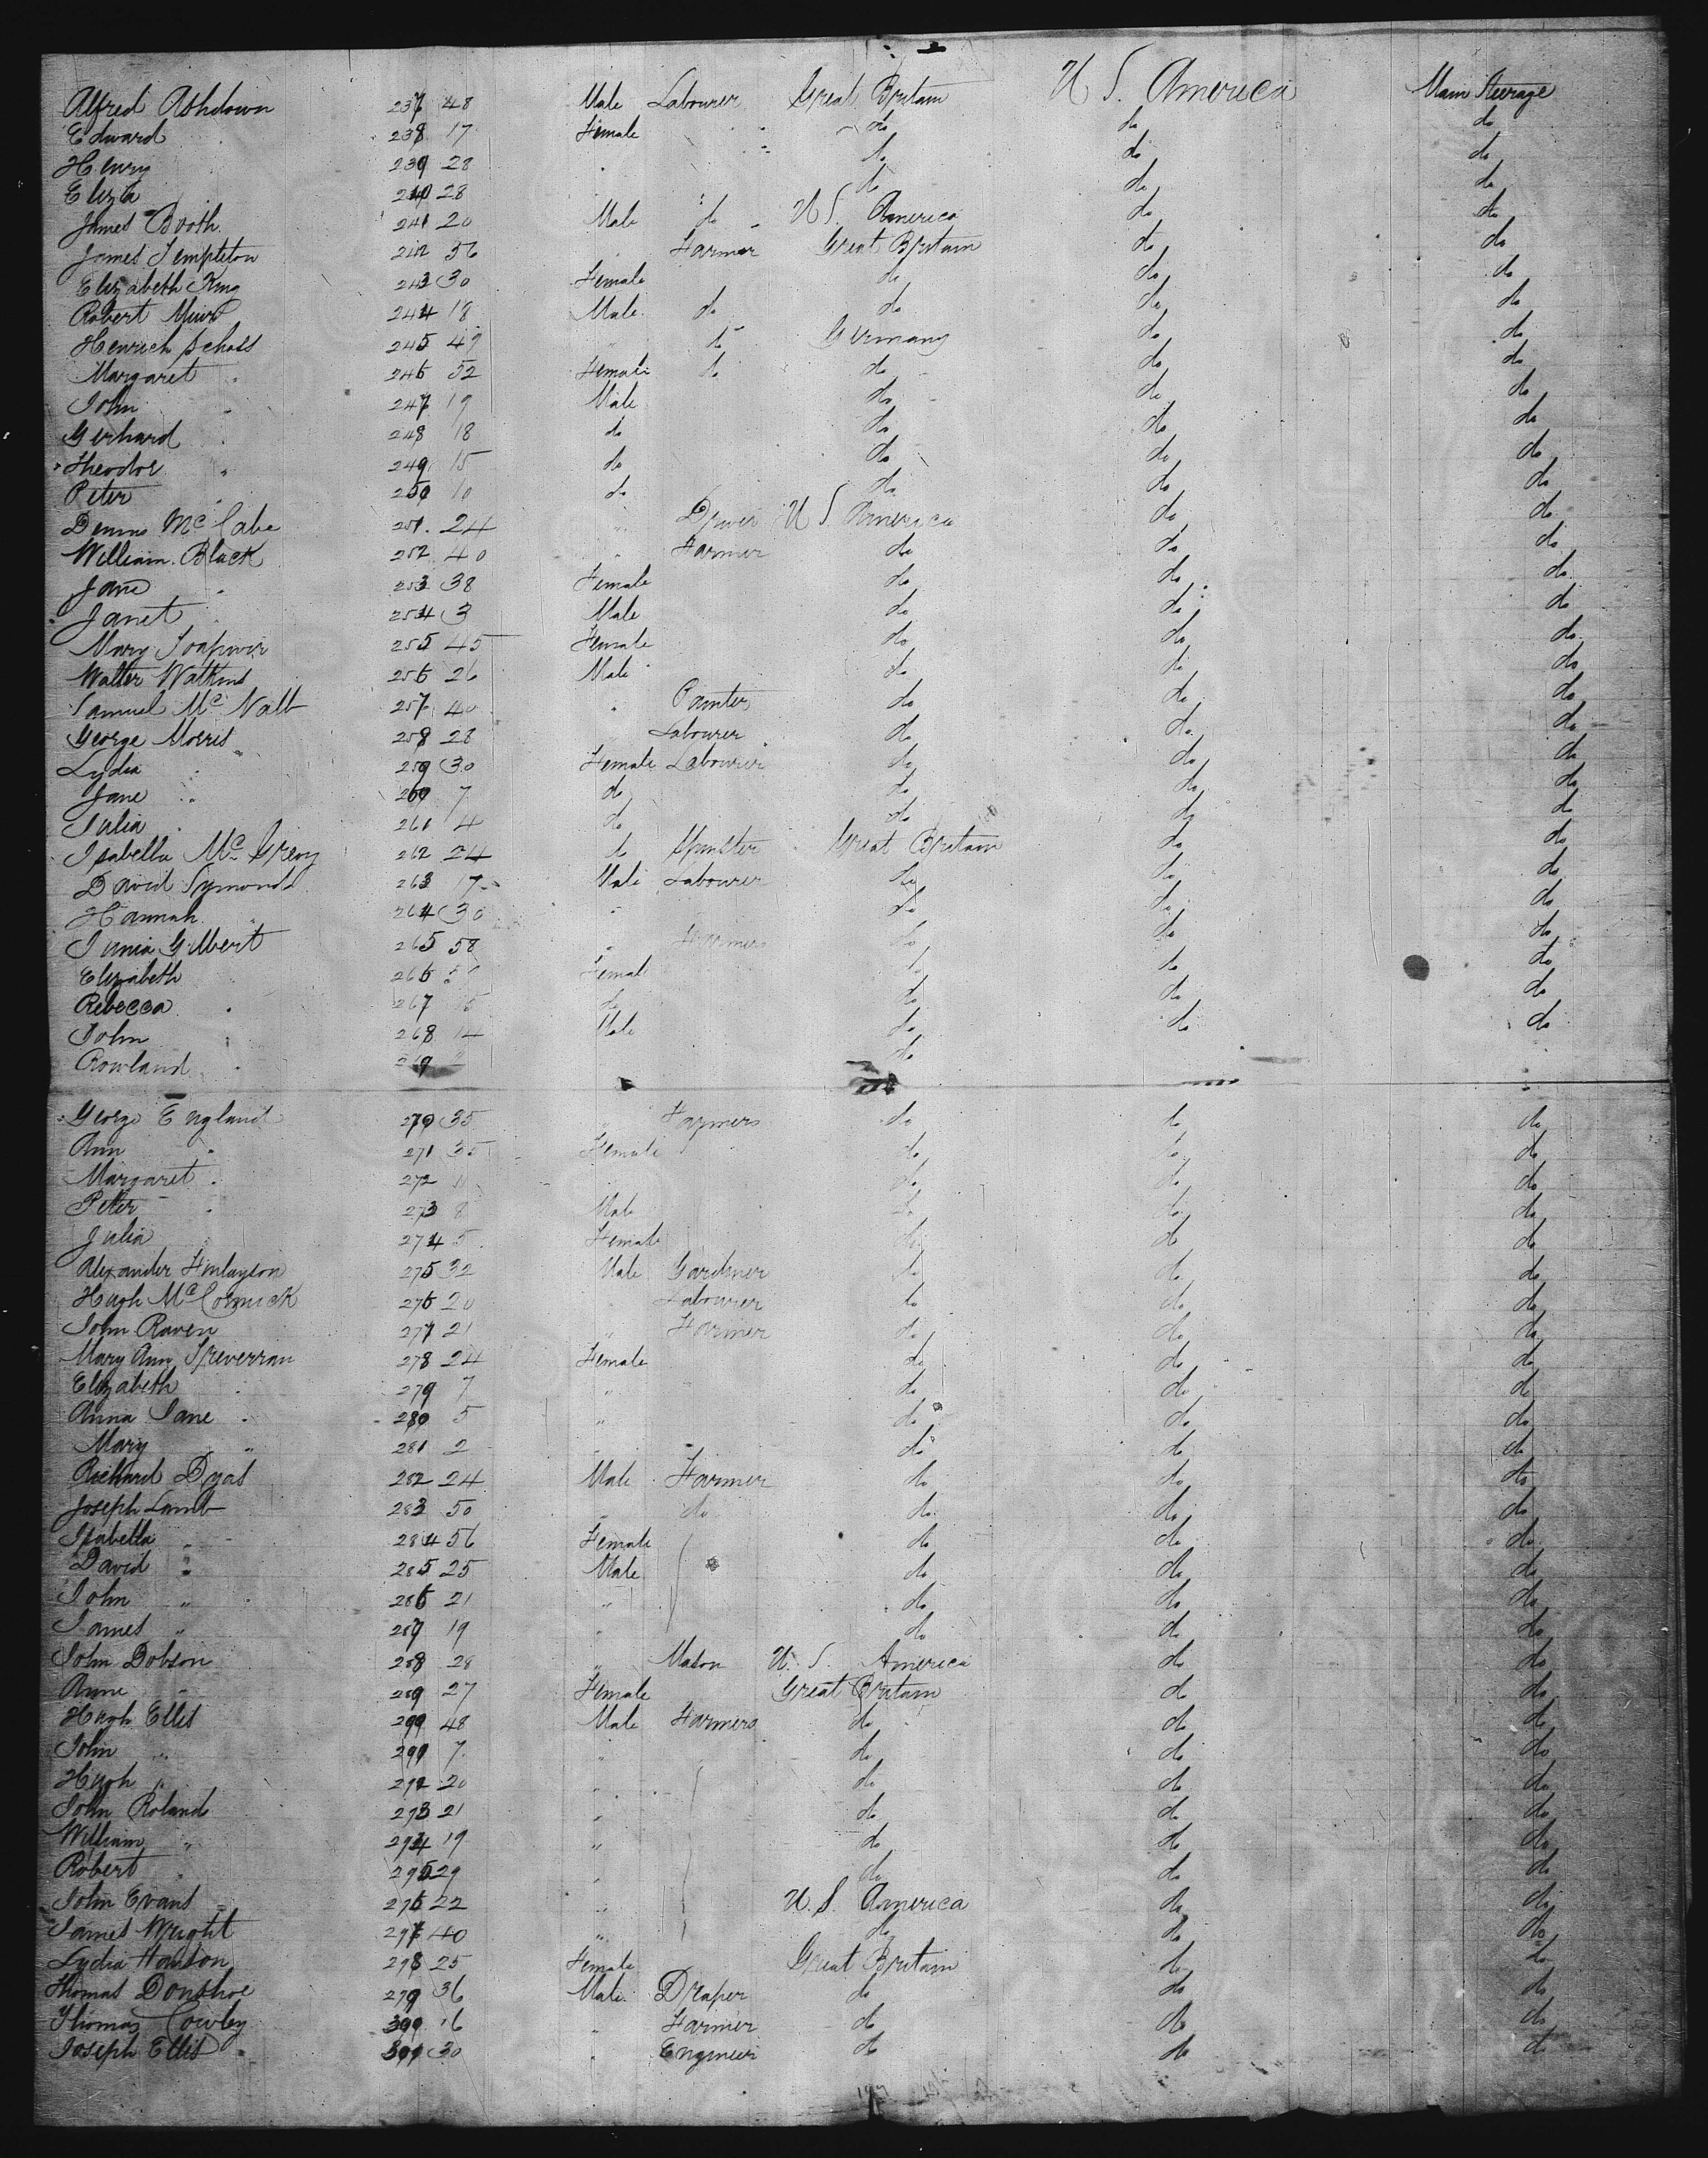 Alfred Ashdown 237 48 Male Labourer Great Britain U S. America Main Steerage
Edward 238 17 Female " do do do
Henry 239 28 " do do do
Eliza 240 28 do do do
James Booth 241 20 Male do U S. America do do
James Templeton 242 56 " Farmer Great Britain do do
Elizabeth King 243 30 Female do do do
Robert Muir 244 18 Male do do do do
Henrich Schoss 245 49 " do Germany do do
Margaret " 246 52 Female do do do do
John " 247 19 Male do do do
Gerhard " 248 18 do do do do
Theodor " 249 15 do do do do
Peter " 250 10 do do do do
Dennis McCabe 251 24 " U S. America do do
William Black 252 40 " Farmer do do do
Jane " 253 38 Female do do do
Janet " 254 3 Male do do do
Mary 255 45 Female do do do
Walter Watkins 256 26 Male do do do
Samuel Mc Nall 257 40 " Painter do do do
George Morris 258 28 Labourer do do do
Lydia " 259 30 Female Labourer do do do
Jane " 260 7 do do do do
Julia " 261 4 do do do do
Isabella Mc 262 24 do Spinster Great Britain do do
David Symonds 263 17 Male Labourer do do do
Hannah " 264 30 " do do do
Gilbert 265 58 " Farmers do do do
Elizabeth 266 Female do do do
Rebecca " 267 15 do do do do
John " 268 14 Male do do do
Rowland " 269 2 do
George England 270 35 " Farmers do do do
Ann " 271 35 Female do do do
Margaret " 272 11 do do do
Peter " 273 8 Male do do do
Julia " 274 5 Female do do do
Alexander Finlayson 275 32 Male Gardener do do do
Hugh McCormick 276 20 " Labourer do do do
John Raven 277 21 " Farmer do do do
Mary Ann Treverran 278 24 Female do do do
Elizabeth " 279 7 " do do do
Anna Jane " 280 5 " do do do
Mary " 281 2 " do do do
Richard Dyas 282 24 Male Farmer do do do
Joseph Lamb 283 50 " do do do do
Isabella " 284 56 Female do do do
David " 285 25 Male do do do
John " 286 21 " do do do
James " 287 19 " do do do
John Dobson 288 28 " Mason U. S. America do do
Anne " 289 27 Female Great Britain do do
Hugh Ellis 290 48 Male Farmers do do do
John " 291 7 " do do do
Hugh " 292 20 " do do do
John Rolands 293 21 " do do do
William " 294 19 " do do do
Robert " 295 29 " do do do
John Evans 296 22 " U. S. America do do
James Wright 297 40 " do do do
Lydia 298 25 Female Great Britain do do
Thomas Donohoe 299 36 Male Draper do do do
Thomas Cowley 300 16 " Farmer do do do
Joseph Ellis 301 30 " Engineer do do do